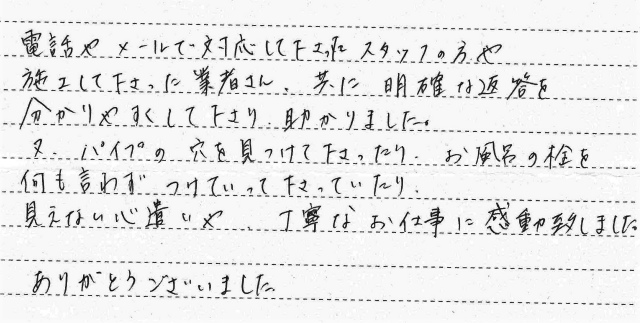 電話や メールで対応して下さった スタッフの方や
施工して下さった業者さん、共に 明確な返答を
分かりやすくして下さり、助かりました。
又、パイプの 穴を見つけて下さったり、お風呂の栓を
何も言わず つけていって下さっていたり、
見えない心遣いや、丁寧なお仕事に感動致しました。
ありがとうございました